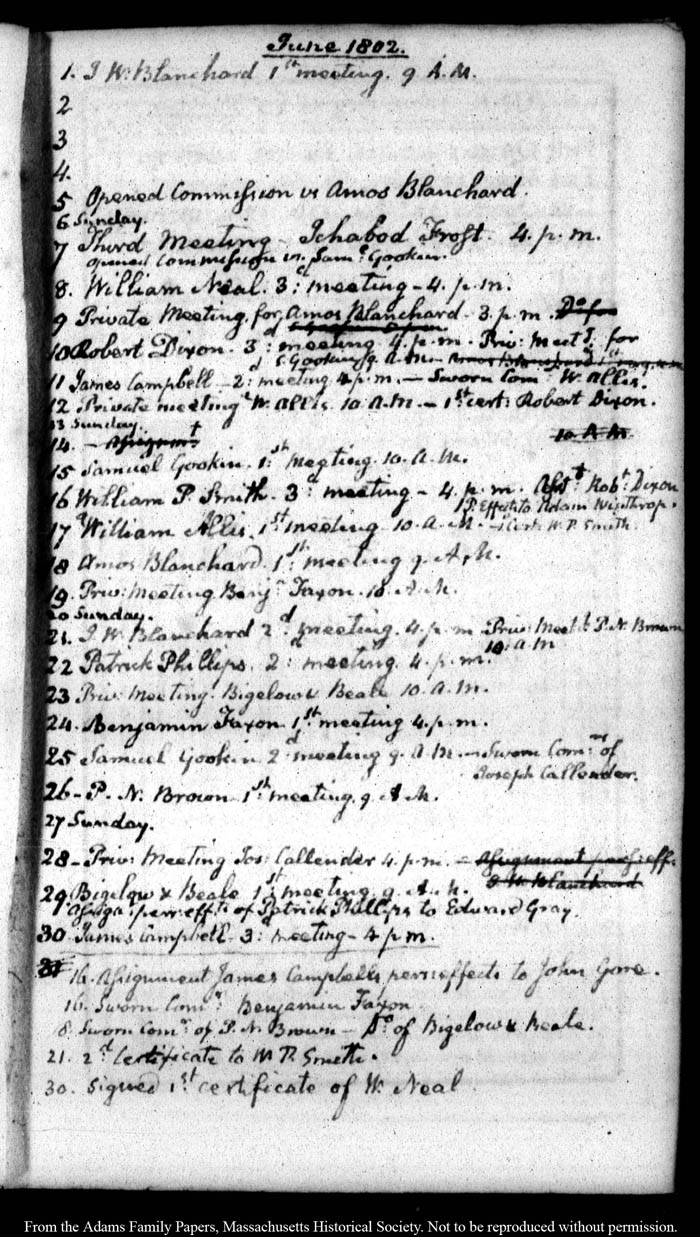 June 1802.
1. J W. Blanchard 1st meeting. 9 A.M.
2
3
4.
5 Opened Commission vs Amos Blanchard.
6 Sunday.
7 Third Meeting - Ichabod Frost. 4. p. m.
opened Commission vs. Saml. Gookin.
8. William Neal. 3d: meeting - 4. p. m.
9 Private Meeting for Amos Blanchard - 3. p. m. Do for
10 Robert Dixon. 3d: meeting 4. p. m. Priv: Meetg. for
S. Gookin 9 A.M. - Amos Blanchard 1st
11 James Campbell - 2d: meeting. 4 p. m. - Sworn Comr. W. Allis.
12 Private meeting W. Allis 10 A.M. - 1st cert: Robert Dixon.
13 Sunday.
14. - Assignmt 10 A M.
15 Samuel Gookin. 1st. Meeting. 10. A. M.
16 William P. Smith. 3d meeting - 4. p. m. Robt. Dixon
P. Effects to Adam Winthrop.
17 William Allis. 1st meeting 10. A. M. - 1 Cert: W. P. Smith.
18 Amos Blanchard. 1st. meeting 9. A. M.
19. Priv: Meeting Benjn. Faxon. 10. A. M.
20 Sunday.
21. J. W. Blanchard 2d. meeting. 4. p. m Priv: Meetg P. N. Brown
10. a m
22 Patrick Phillips. 2d: meeting. 4. p. m.
23 Priv: Meeting. Bigelow & Beale 10. A. M.
24. Benjamin Faxon. 1st meeting 4. p. m.
25 Samuel Gookin 2d meeting 9. A M. - Sworn Comrs of
Joseph Callender.
26 - P. N. Brown 1st: meeting. 9 A M.
27 Sunday.
28 - Priv: Meeting Jos: Callender 4. p. m. - Assignment pers: eff:
J W Blanchard
29 Bigelow & Beale 1st meeting. 9. A. M.
Assigt. pers: effts of Patrick Phillips to Edward Gray.
30 James Campbell. 3d: meeting - 4 p m.
31 16. Assignment James Campbell's pers: effects to John Gore.
16. Sworn Comr: Benjamin Faxon.
18. Sworn Comr. of P. N. Brown - Do of Bigelow & Beale.
21. 2d Certificate to W P. Smith.
30. Signed 1st certificate of W. Neal
From the Adams Family Papers, Massachusetts Historical Society. Not to be reproduced without permission.